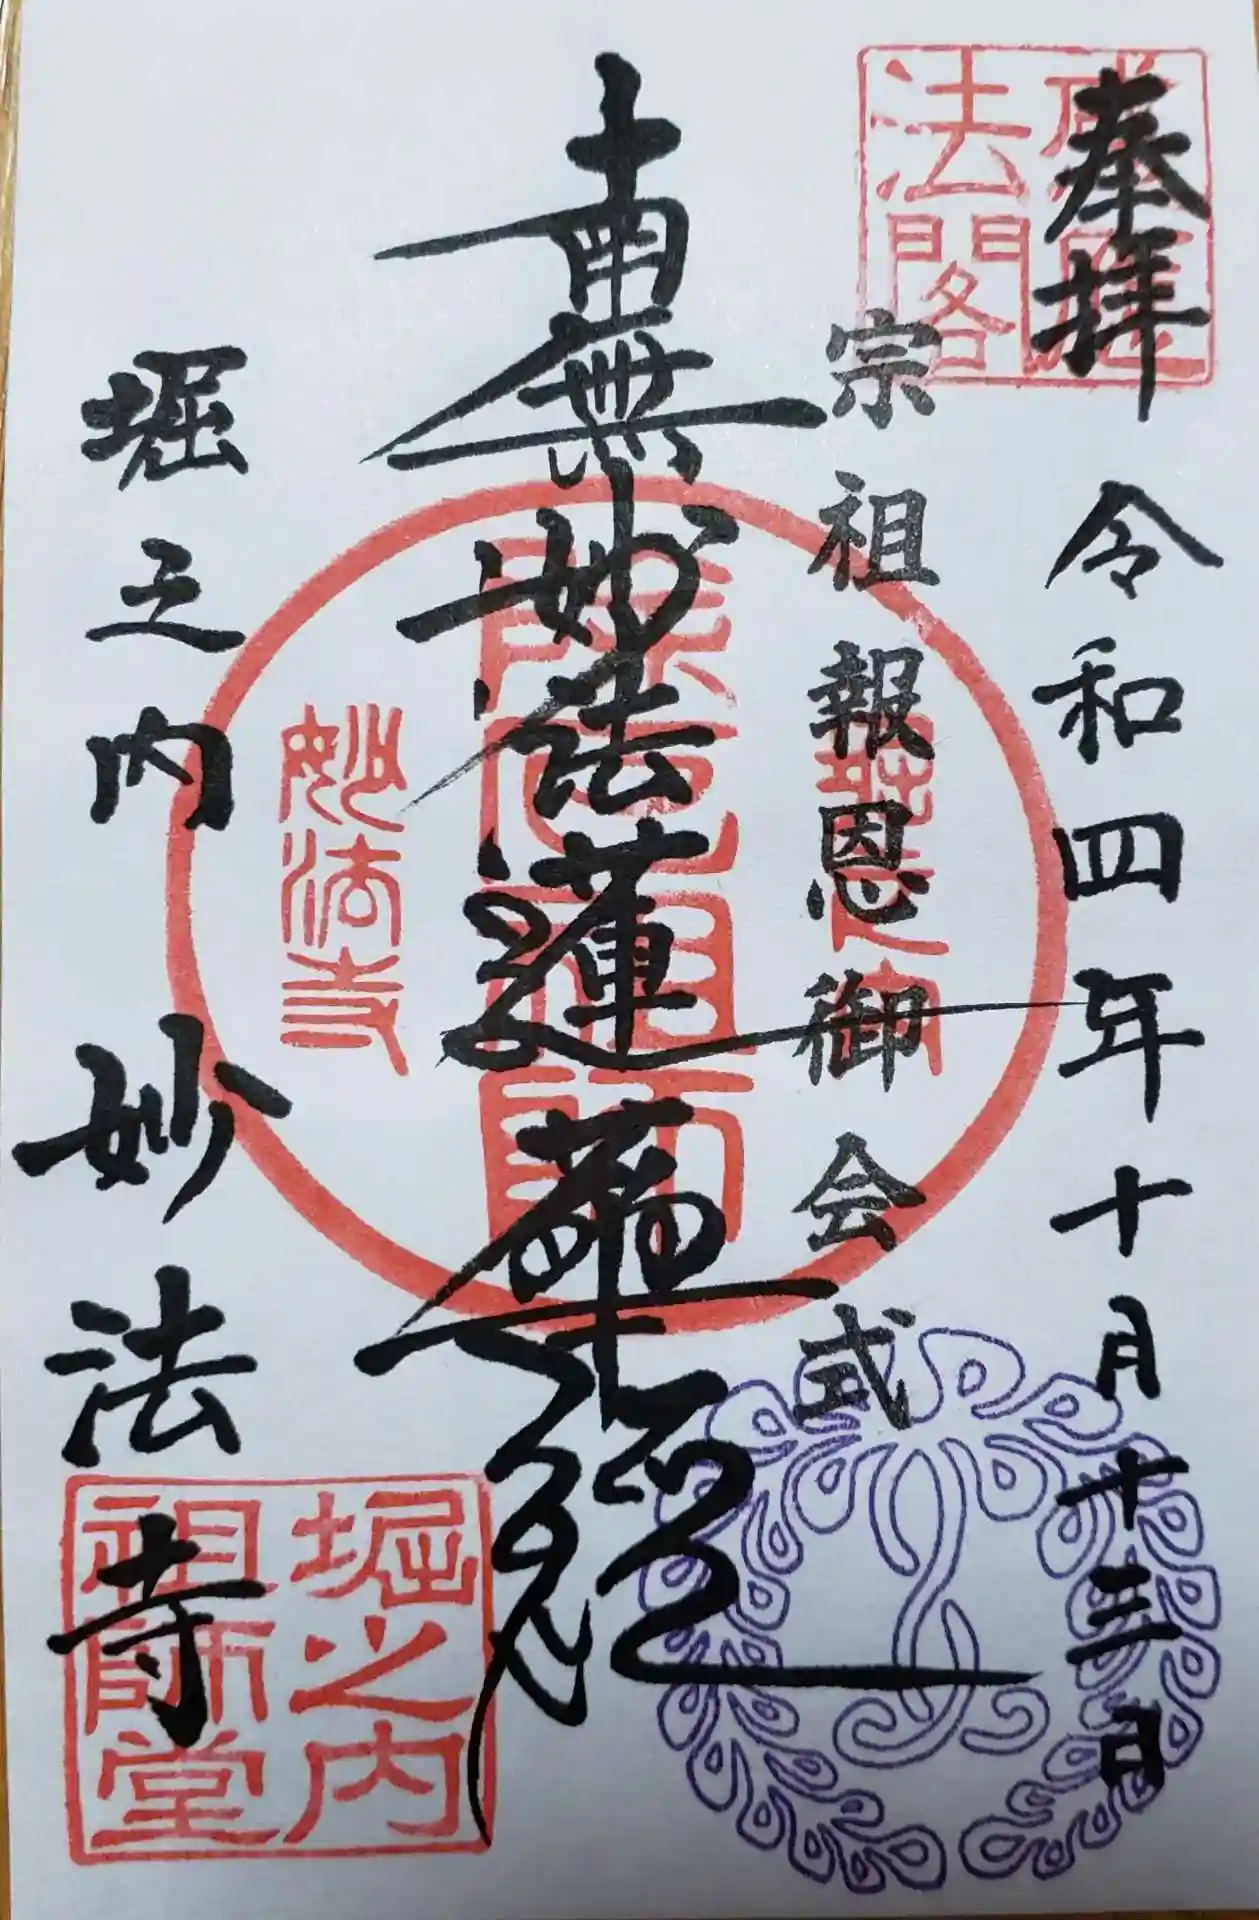 奉拝
令和四年十月十三日
宗祖報恩御会式
南無妙法蓮華経
堀之内
妙法寺
法閣
妙法寺
除厄祖師
堀之内
祖師堂